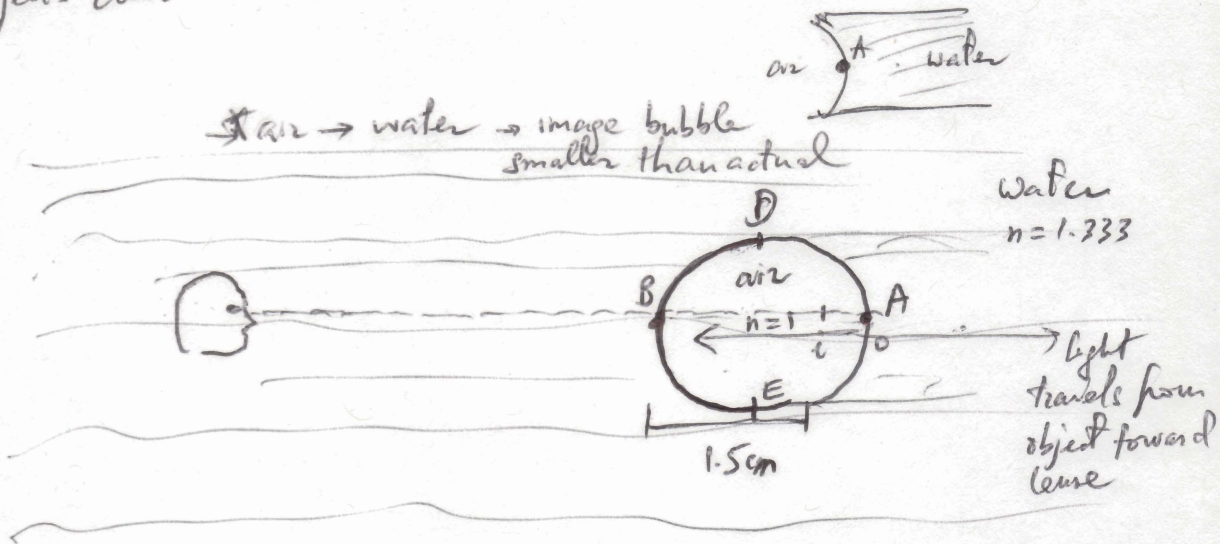 air A water
air → water → image bubble
smaller than actual
water
n = 1.333
D
air
B n=1 A
i o
E
1.5cm
light
travels from
object toward
lense